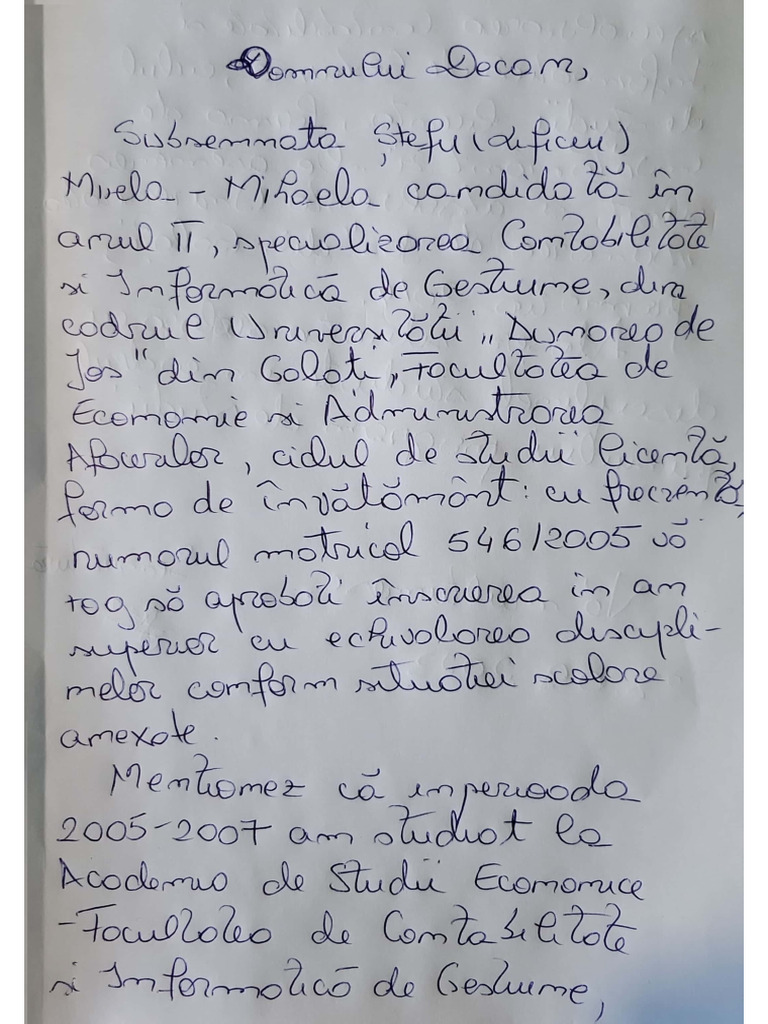 Domnului Decan,
Subsemnata Ștefu (Lificeu)
Mirela - Mihaela candidată în
anul II, specializarea Contabilitate
si Informatică de Gestiune, din
cadrul Universității "Dunarea de
Jos" din Galati, Facultatea de
Economie si Administrarea
Afacerilor, ciclul de studii licentă,
forma de învătământ: cu frecventă,
numarul matricol 546/2005 vă
rog să aprobati înscrierea in an
superior cu echivalarea discipli-
nelor conform situatiei scolare
anexate.
Mentionez că in perioada
2005-2007 am studiat la
Academia de Studii Economice
- Facultatea de Contabilitate
si Informatică de Gestiune,